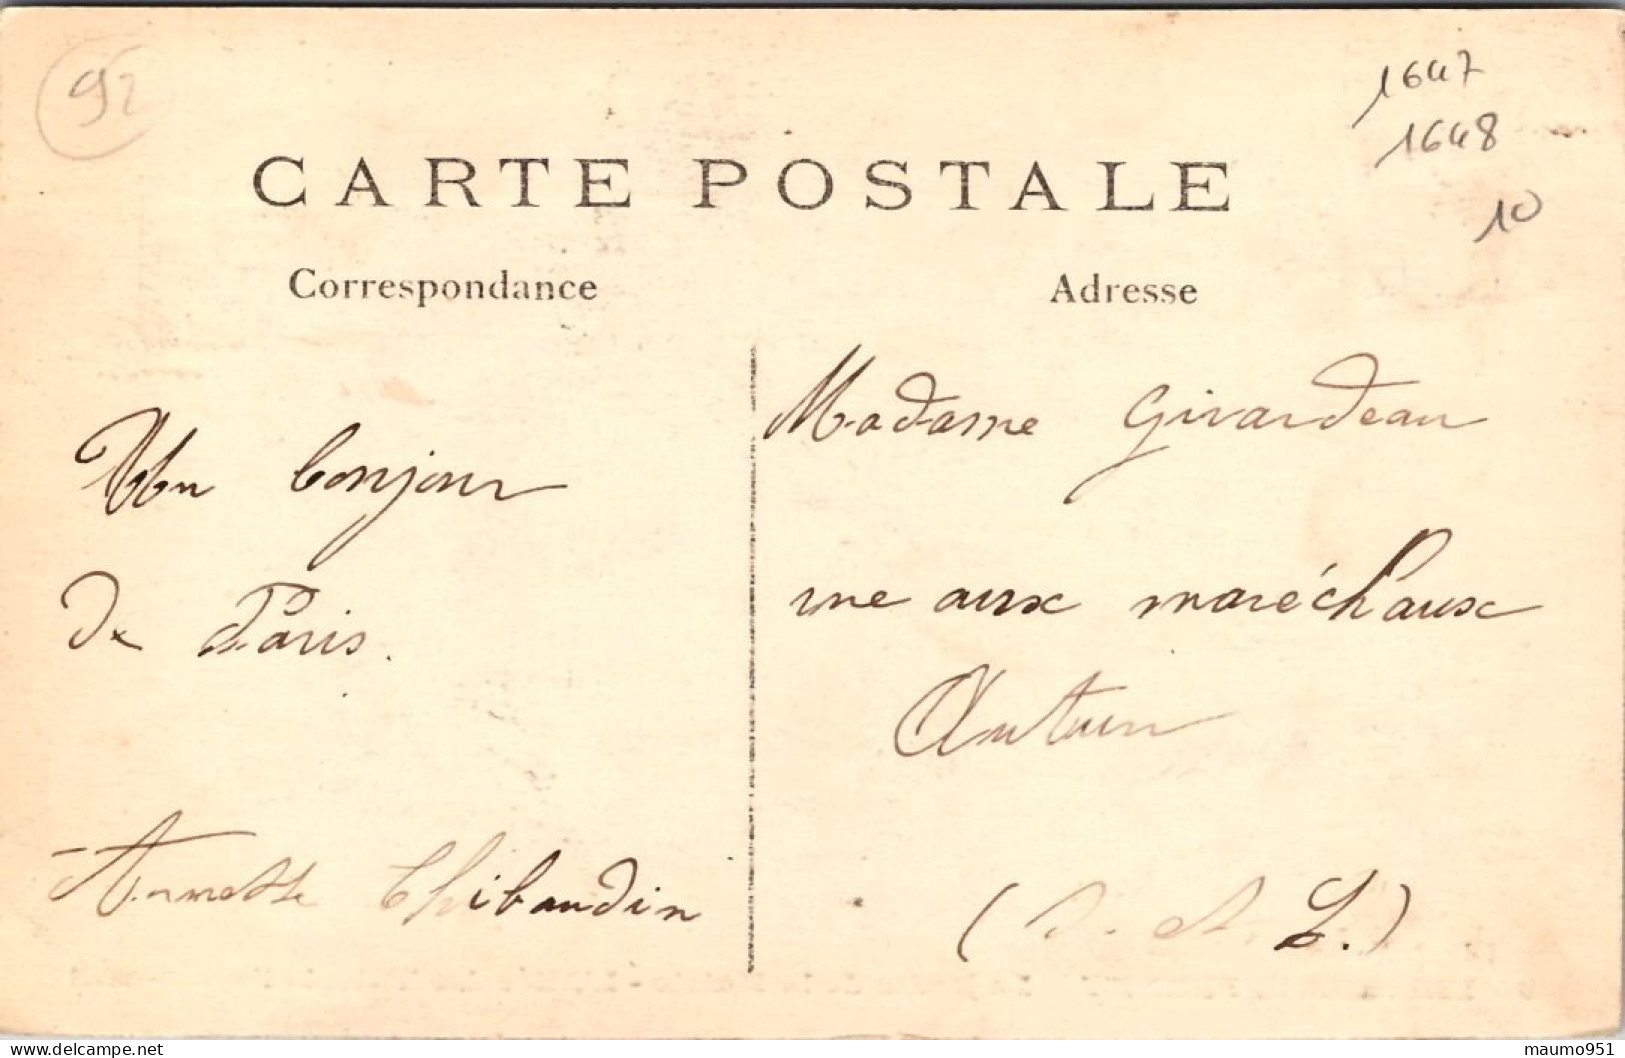 92
1647
1648
10
CARTE POSTALE
Correspondance
Adresse
Un bonjour
de Paris.
Annette Thibaudin
Madame Girardeau
rue aux maréchaux
Autun
(S. et L.)
delcampe.net
maumo951